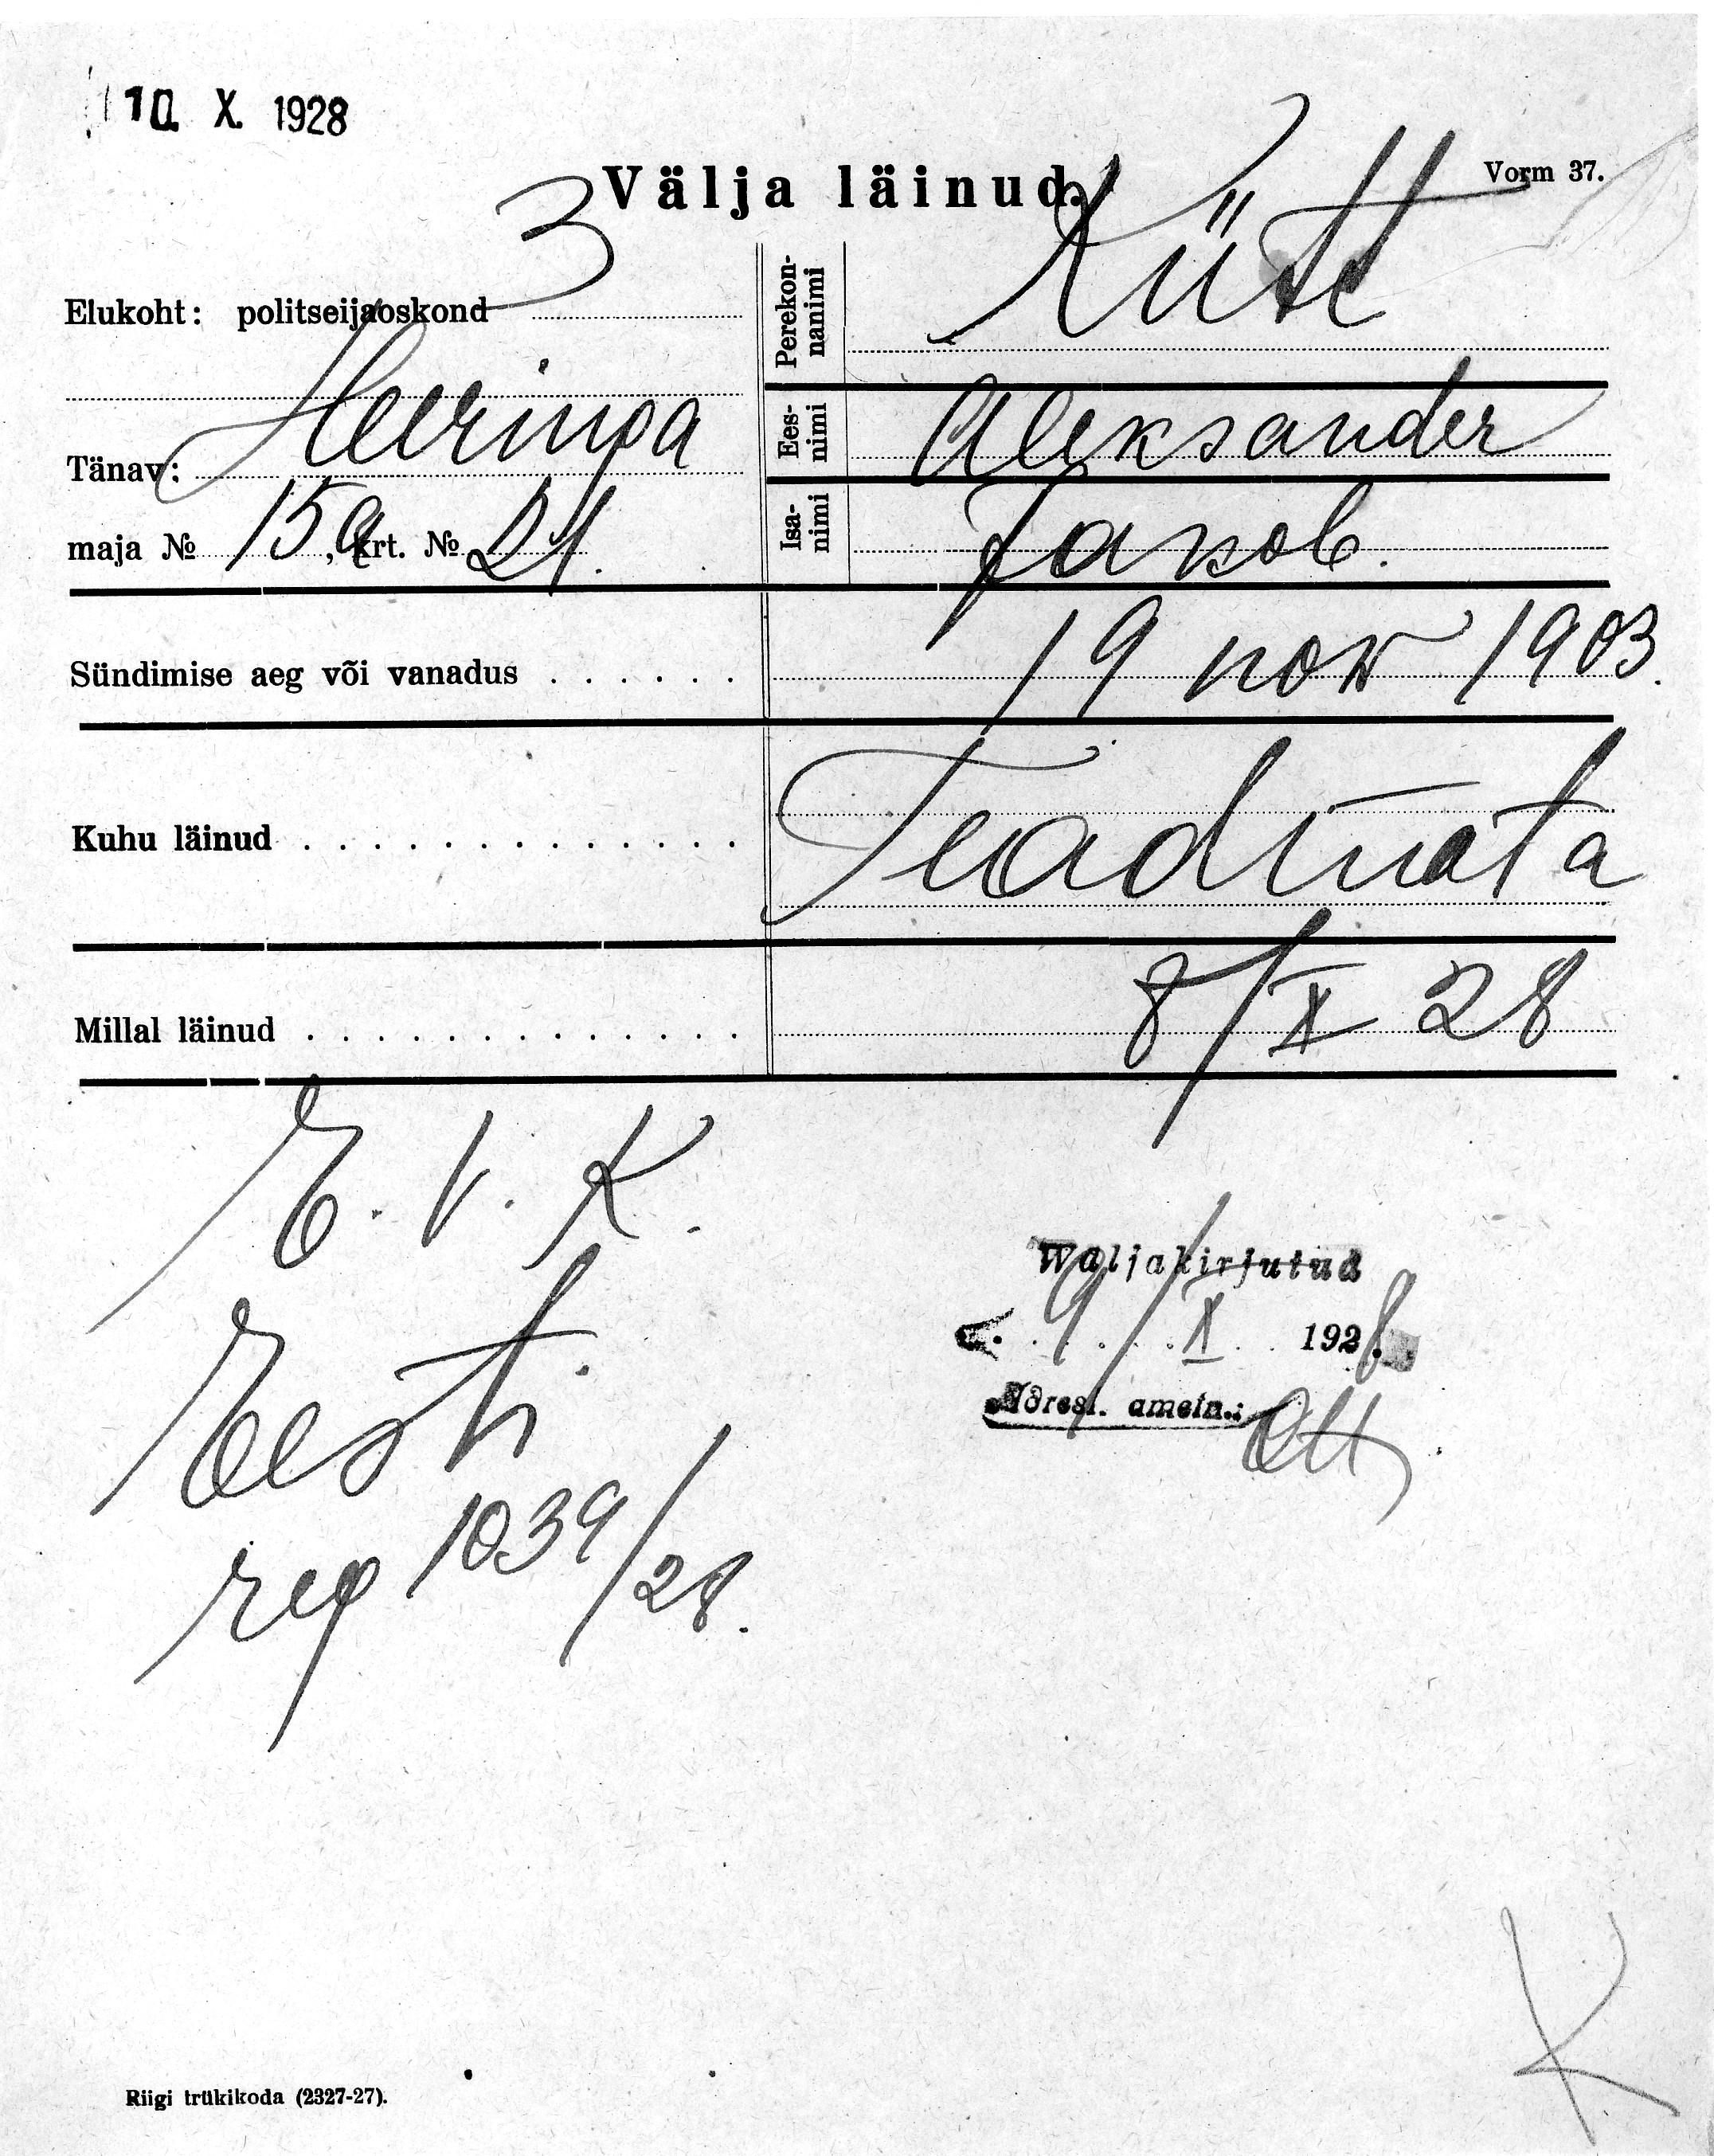 10. X. 1928
Välja läinud.
Vorm 37.
Elukoht: politseijaoskond 3
Tänav: Heeringa
maja № 15a, krt. № 21.
Perekon-
nanimi
Kütt
Ees-
nimi
Aleksander
Isa-
nimi
Jakob.
Sündimise aeg või vanadus . . . . . . 19 nov 1903.
Kuhu läinud . . . . . . . . . . . . . . Teadmata
Millal läinud . . . . . . . . . . . . . 8/X 28
E. V. K.
Eesti
reg 1039/28.
Waljakirjutud
9/X 1928.
Adresl. ametn.: Ott
K
Riigi trükikoda (2327-27).